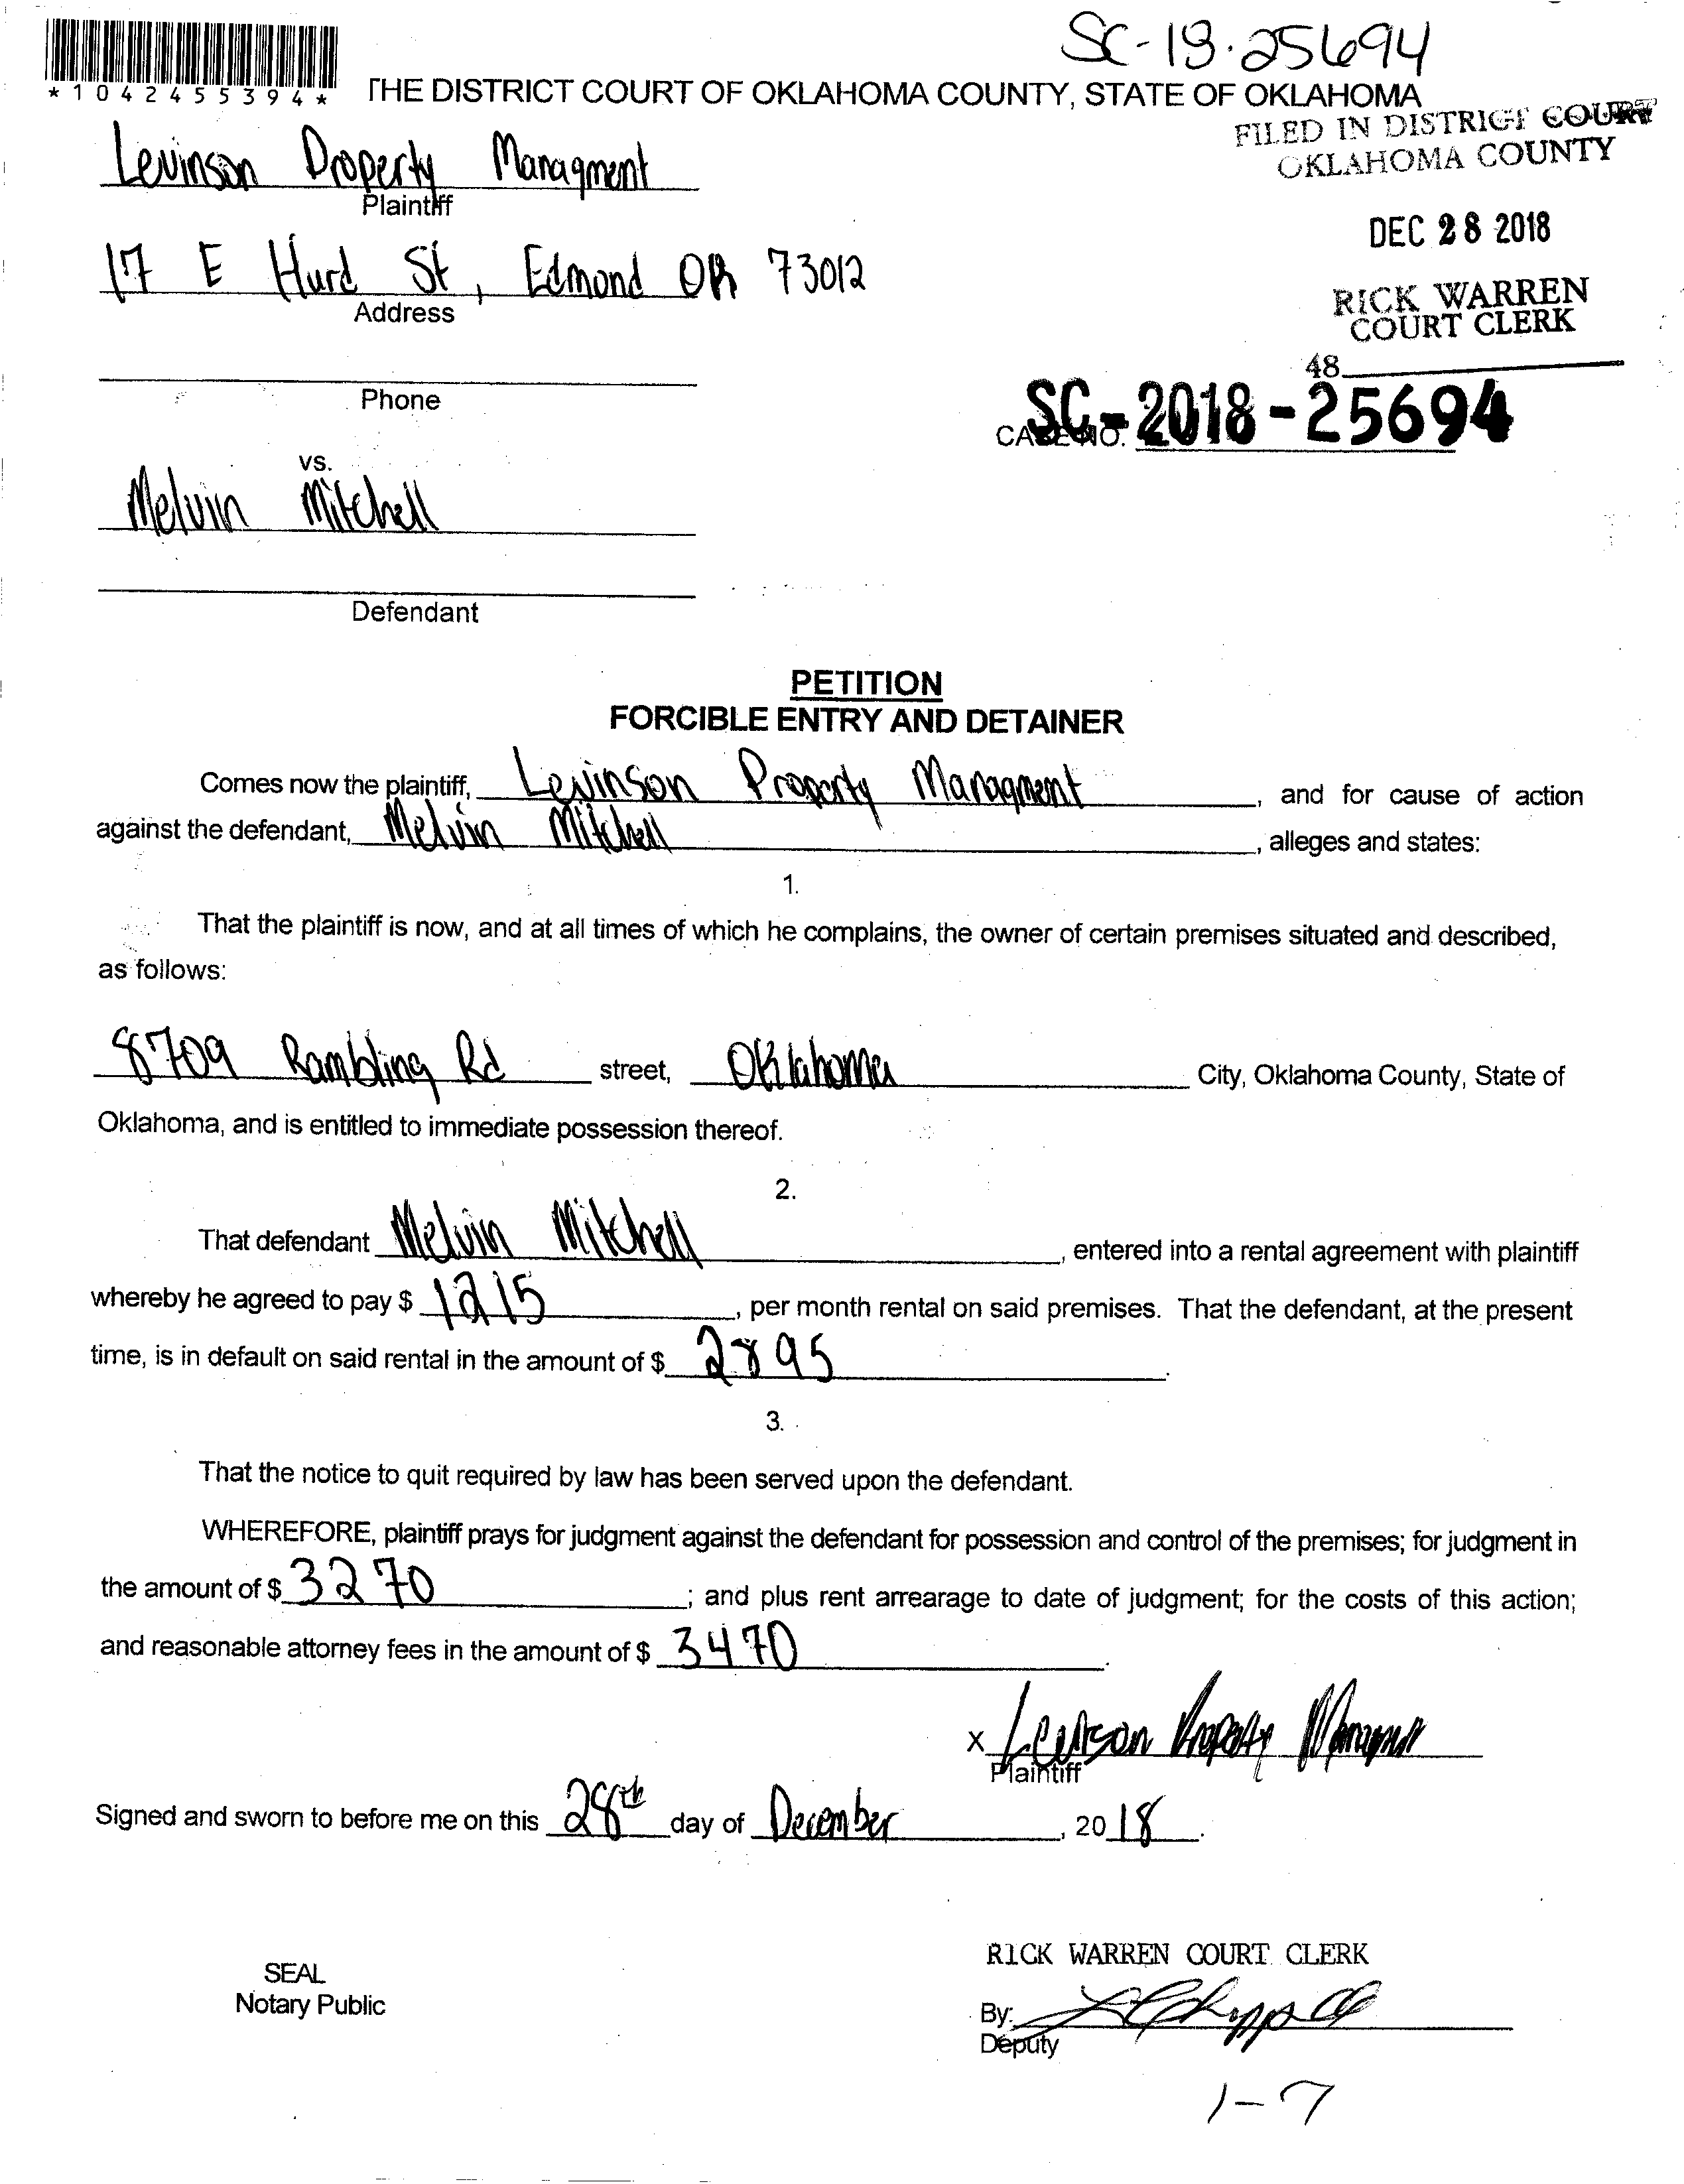 SC-18-25694
*1042455394*
THE DISTRICT COURT OF OKLAHOMA COUNTY, STATE OF OKLAHOMA
FILED IN DISTRICT COURT
OKLAHOMA COUNTY
Levinson Property Managment
Plaintiff
DEC 28 2018
17 E Hurd St, Edmond OK 73012
Address
RICK WARREN
COURT CLERK
48
Phone
CASE NO. SC-2018-25694
vs.
Melvin Mitchell
Defendant
PETITION
FORCIBLE ENTRY AND DETAINER
Comes now the plaintiff, Levinson Property Managment, and for cause of action
against the defendant, Melvin Mitchell, alleges and states:
1.
That the plaintiff is now, and at all times of which he complains, the owner of certain premises situated and described,
as follows:
8709 Rambling Rd street, Oklahoma City, Oklahoma County, State of
Oklahoma, and is entitled to immediate possession thereof.
2.
That defendant Melvin Mitchell, entered into a rental agreement with plaintiff
whereby he agreed to pay $ 1215, per month rental on said premises. That the defendant, at the present
time, is in default on said rental in the amount of $ 2895.
3.
That the notice to quit required by law has been served upon the defendant.
WHEREFORE, plaintiff prays for judgment against the defendant for possession and control of the premises; for judgment in
the amount of $ 3270; and plus rent arrearage to date of judgment; for the costs of this action;
and reasonable attorney fees in the amount of $ 3470.
x Levinson Property Managment
Plaintiff
Signed and sworn to before me on this 28th day of December, 2018.
RICK WARREN COURT CLERK
SEAL
Notary Public
By:
Deputy
1-7